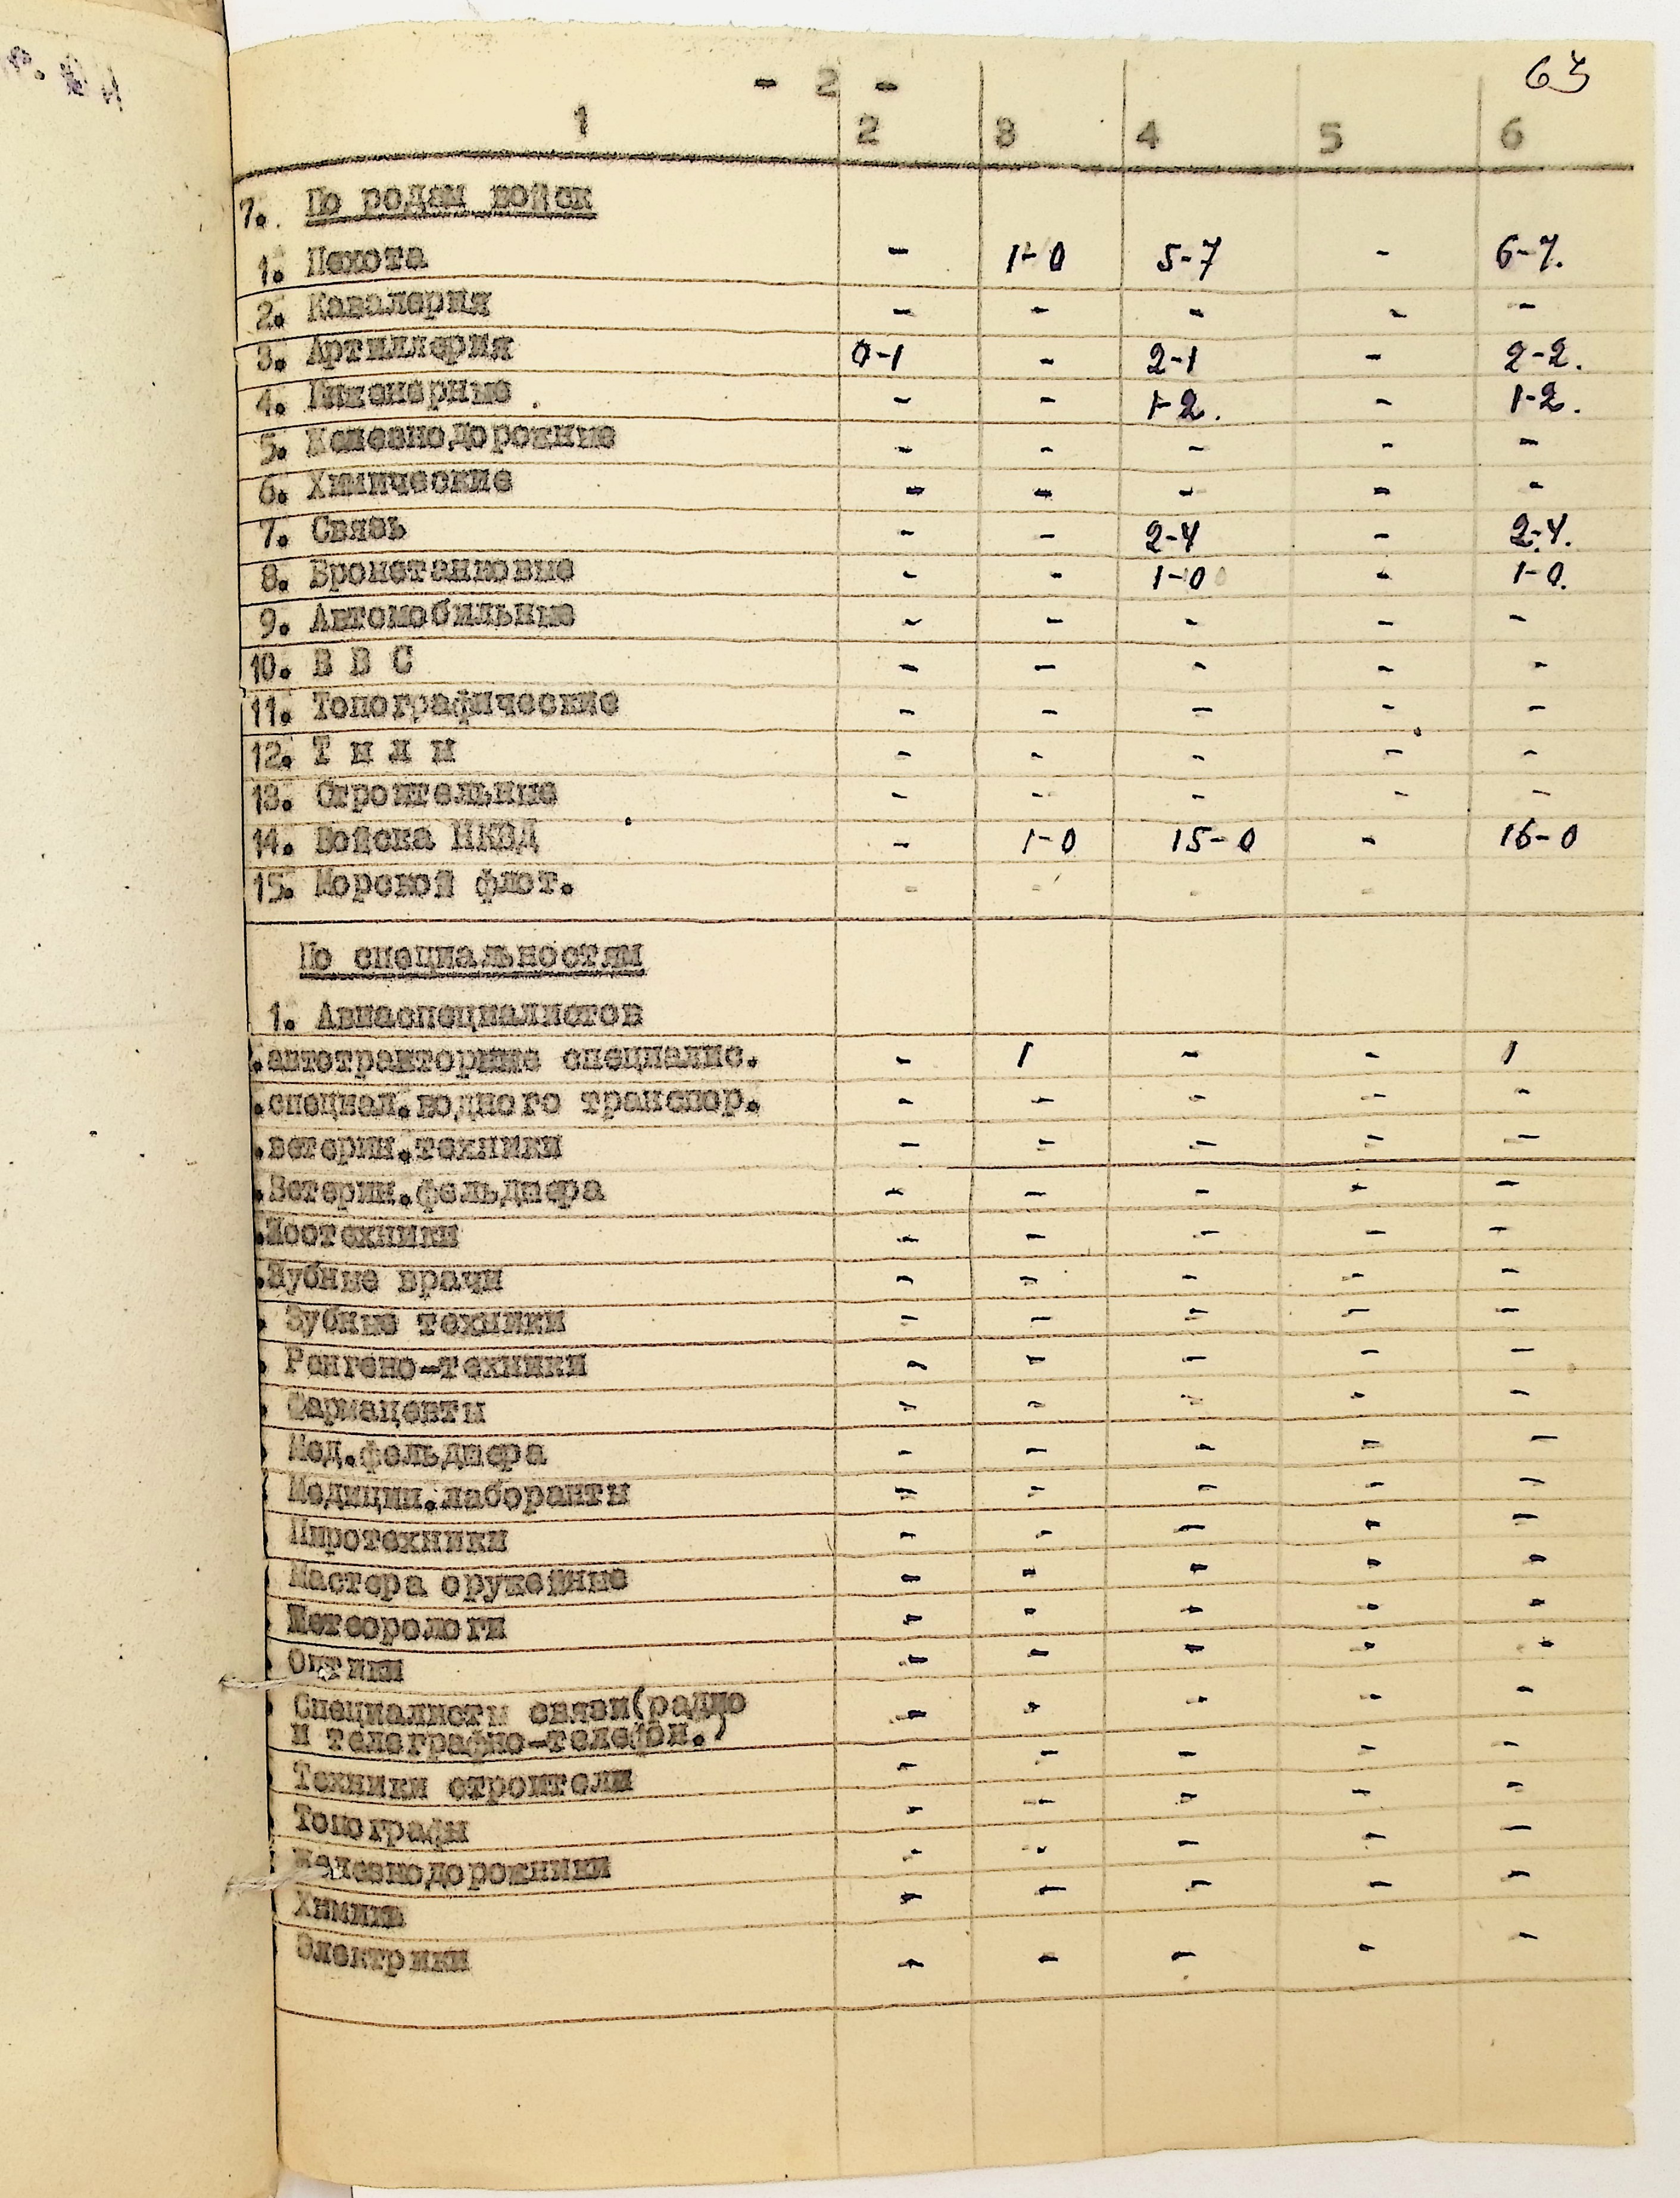 - 2 -
63
1 2 3 4 5 6
7. По родам войск
1. Пехота - 1-0 5-7 - 6-7.
2. Кавалерия - - - - -
3. Артиллерия 0-1 - 2-1 - 2-2.
4. Инженерные - - 1-2. - 1-2.
5. Железнодорожные - - - - -
6. Химические - - - - -
7. Связь - - 2-4 - 2-4.
8. Бронетанковые - - 1-0 - 1-0.
9. Автомобильные - - - - -
10. В В С - - - - -
11. Топографические - - - - -
12. Т и л и - - - - -
13. Строительные - - - - -
14. Войска НКВД - 1-0 15-0 - 16-0
15. Морской флот. - - - -
По специальностям
1. Авиаспециалистов
.автотракторные специалис. - 1 - - 1
.специал.водного транспор. - - - - -
.ветерин.техники - - - - -
.Ветерин.фельдшера - - - - -
.Зоотехники - - - - -
.Зубные врачи - - - - -
. Зубные техники - - - - -
. Ренгено-техники - - - - -
Фармацевты - - - - -
Мед.фельдшера - - - - -
Медицин.лаборанты - - - - -
Пиротехники - - - - -
Мастера оружейные - - - - -
Метеорологи - - - - -
Оптики - - - - -
Специалисты связи(радио - - - - -
и телеграфно-телефон.)
Техники строители - - - - -
Топографы - - - - -
Железнодорожники - - - - -
Химики - - - - -
Электрики - - - - -